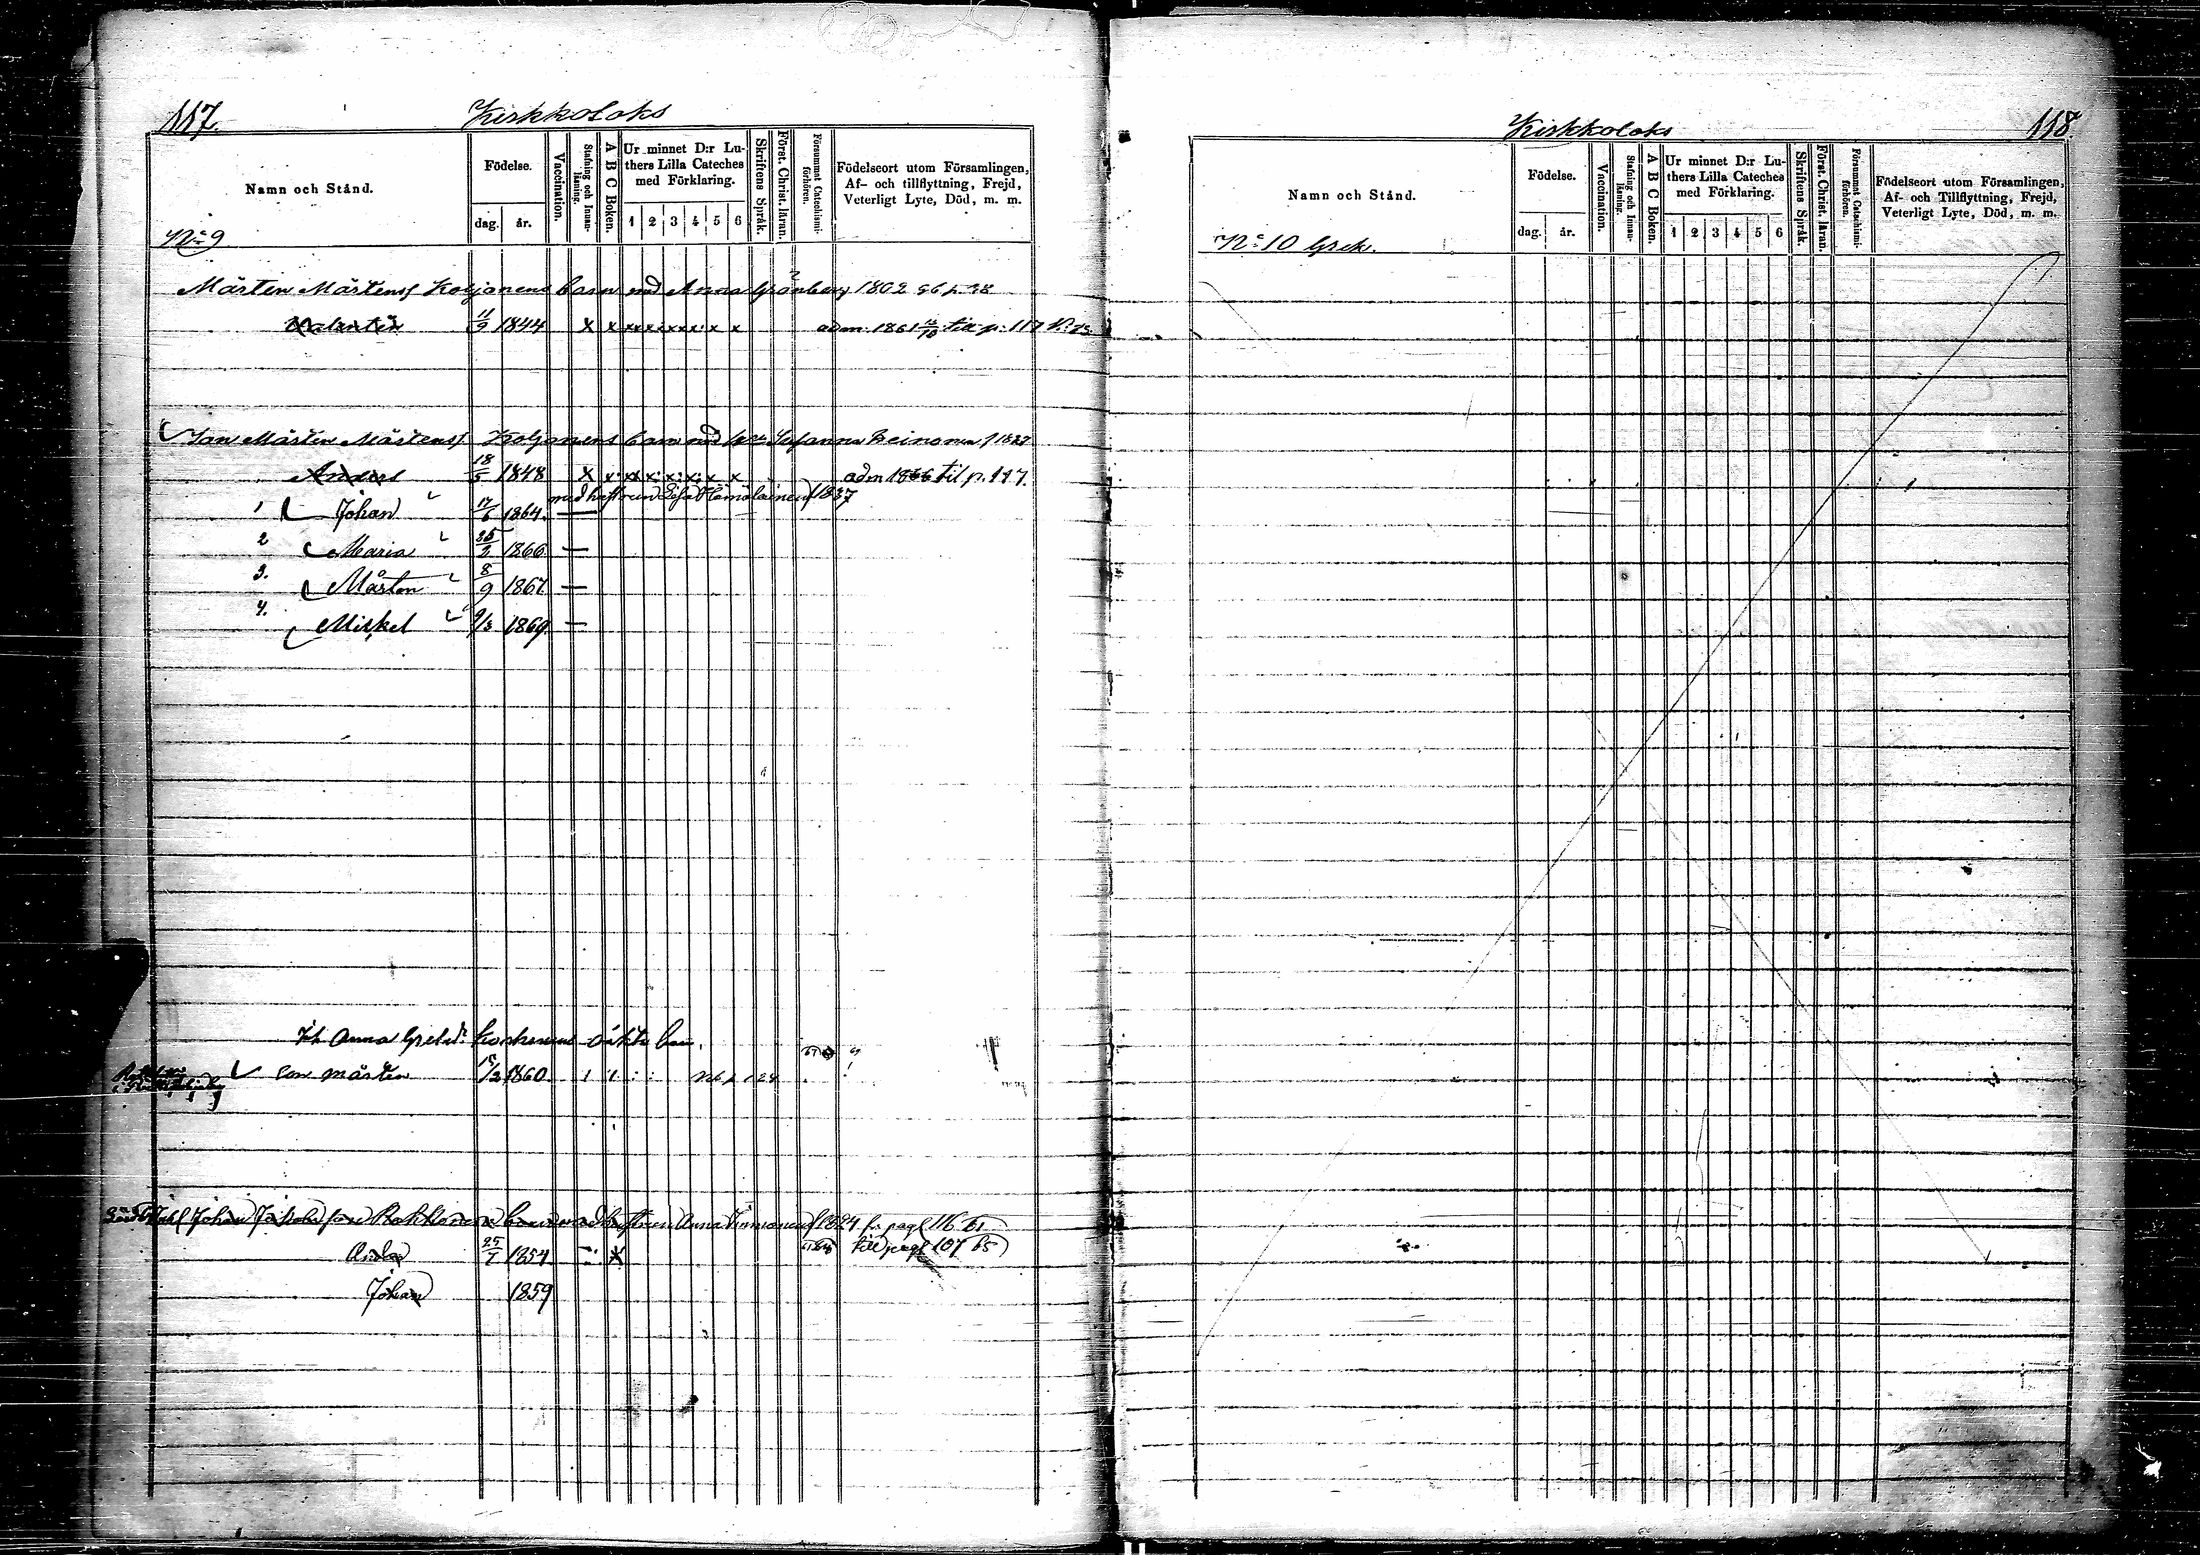 117.
Kirkkoloks
Namn och Stånd.
Födelse.
dag. år.
Vaccination.
Stafning och Innanläsning.
A B C Boken.
Ur minnet D:r Luthers Lilla Cateches med Förklaring.
1 2 3 4 5 6
Skriftens Språk.
Förest. Christ. läran.
Försummat Catechismiförhören.
Födelseort utom Församlingen,
Af- och tillflyttning, Frejd,
Veterligt Lyte, Död, m. m.
No 9
Mårten Mårtens Koljanens barn med Anna Grönberg 1802
11/9 1844 x x adm. 1861 till p. 117
Jan Mårten Mårtens Koljonens barn med Susanna
Anders 18/5 1848 x x adm 1866 til p. 197.
med hustrun Lisa Hämäläinen f 1837
1 Johan 17/6 1864. —
2 Maria 25/2 1866 —
3. Mårten 8/9 1867. —
4. Mickel 9/3 1869. —
Anna Gretas oäkta barn.
son Mårten 15/2 1860.
Johan Rokkonen barn med hustrun Anna f 1824 fr. pag 116 61
25/7 1854. till pag 107 65
Johan 1859
Kirkkoloks
118.
Namn och Stånd.
Födelse.
dag. år.
Vaccination.
Stafning och Innanläsning.
A B C Boken.
Ur minnet D:r Luthers Lilla Cateches med Förklaring.
1 2 3 4 5 6
Skriftens Språk.
Förest. Christ. läran.
Försummat Catechismiförhören.
Födelseort utom Församlingen,
Af- och Tillflyttning, Frejd,
Veterligt Lyte, Död, m. m.
No 10 Grek.